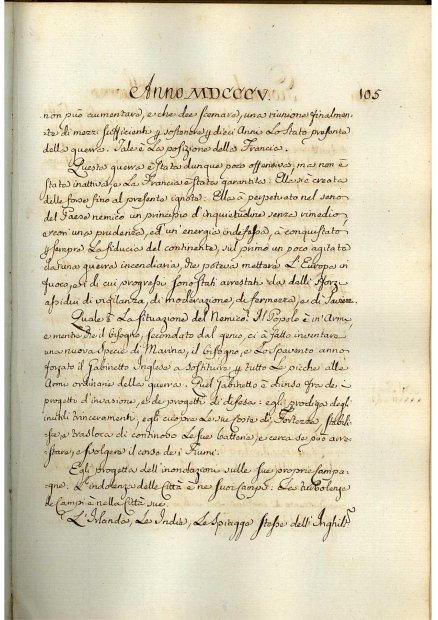 Anno MDCCCV. 105
non può aumentare, e che dee scemare, una riunione finalmen-
te di mezzi sufficienti p sostenere p dieci Anni Lo Stato presente
della guerra. Tale è La posizione della Francia.
Questa guerra è stata dunque poco offensiva, ma non è
stata inattiva, e La Francia è stata garantita: Ella si è creata
delle forze fino al presente ignote: Ella à perpetuato nel seno
del Paese nemico un principio d'inquietudine senza rimedio,
e con una prudenza, ed un'energia indefessa, à conquistato
p sempre La fiducia del continente, sul primo un poco agitato
da una guerra incendiaria, che poteva mettere L'Europa in
fuoco, e di cui i progressi sono stati arrestati da degli sforzi
assidui di vigilanza, di moderazione, di fermezza, e di Sapere.
Quale è La situazione del Nemico? Il Popolo è in Armi,
e mentre che il bisogno, secondato dal genio, ci à fatto inventare
una nuova specie di Marina, il bisogno, e Lo Spavento anno
forzato il Gabinetto Inglese a sostituire p tutto Le picche alle
Armi ordinarie della guerra. Quel Gabinetto è diviso fra dei
progetti d'invasione, e de' progetti di difesa: egli prodiga degli
inutili trinceramenti; egli cuopre Le sue Coste di Fortezze,
e trasloca di continovo Le sue batterie, e cerca se può arre-
stare, e svolgere il corso de i Fiumi.
Egli progetta dell'inondazioni sulle sue proprie campa-
gne: L'indolenza delle Città è ne' suoi Campi: La turbolenza
de Campi è nelle Città sue.
L'Irlanda, Le Indie, Le Spiagge Stesse dell'Inghil